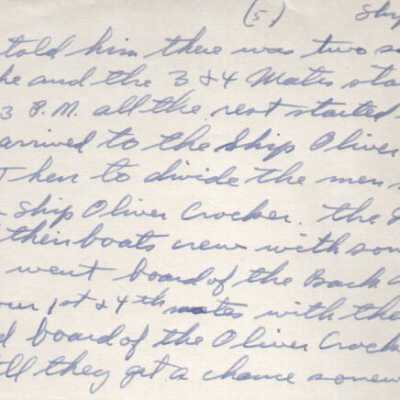 (5) Ship
told him there was two sa
he and the 3 & 4 Mates sta
3 P.M. all the rest started
arrived to the Ship Oliver
Then to divide the men
Ship Oliver Crocker. the
their boats crew with som
went board of the Bark
our 1st & 4th mates with the
board of the Oliver Crock
till they get a chance somew